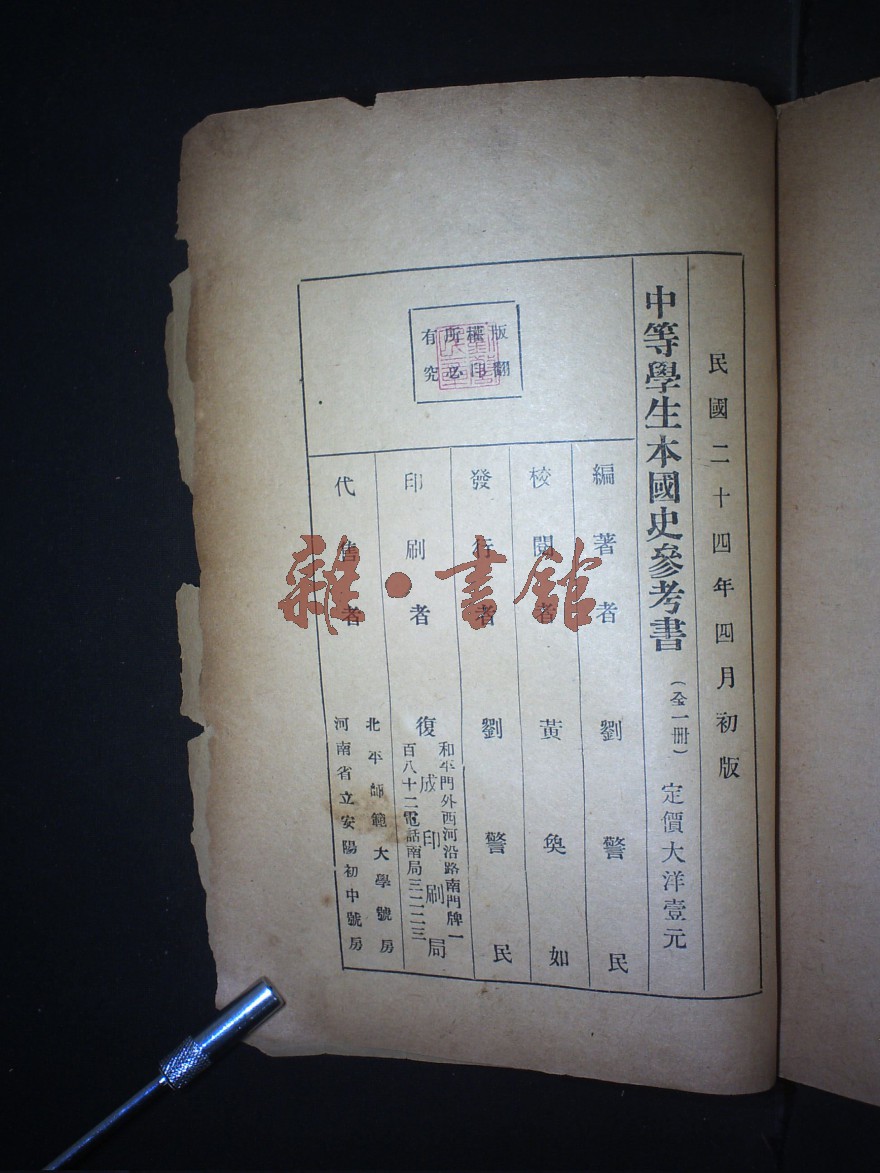 民國二十四年四月初版
中等學生本國史參考書（全一冊）定價大洋壹元
版權所有
翻印必究
編著者 劉警民
校閱者 黃奐如
發行者 劉警民
印刷者 復成印刷局
和平門外西河沿路南門牌一
百八十二電話南局三二二三
代售者
北平師範大學號房
河南省立安陽初中號房
雜·書館